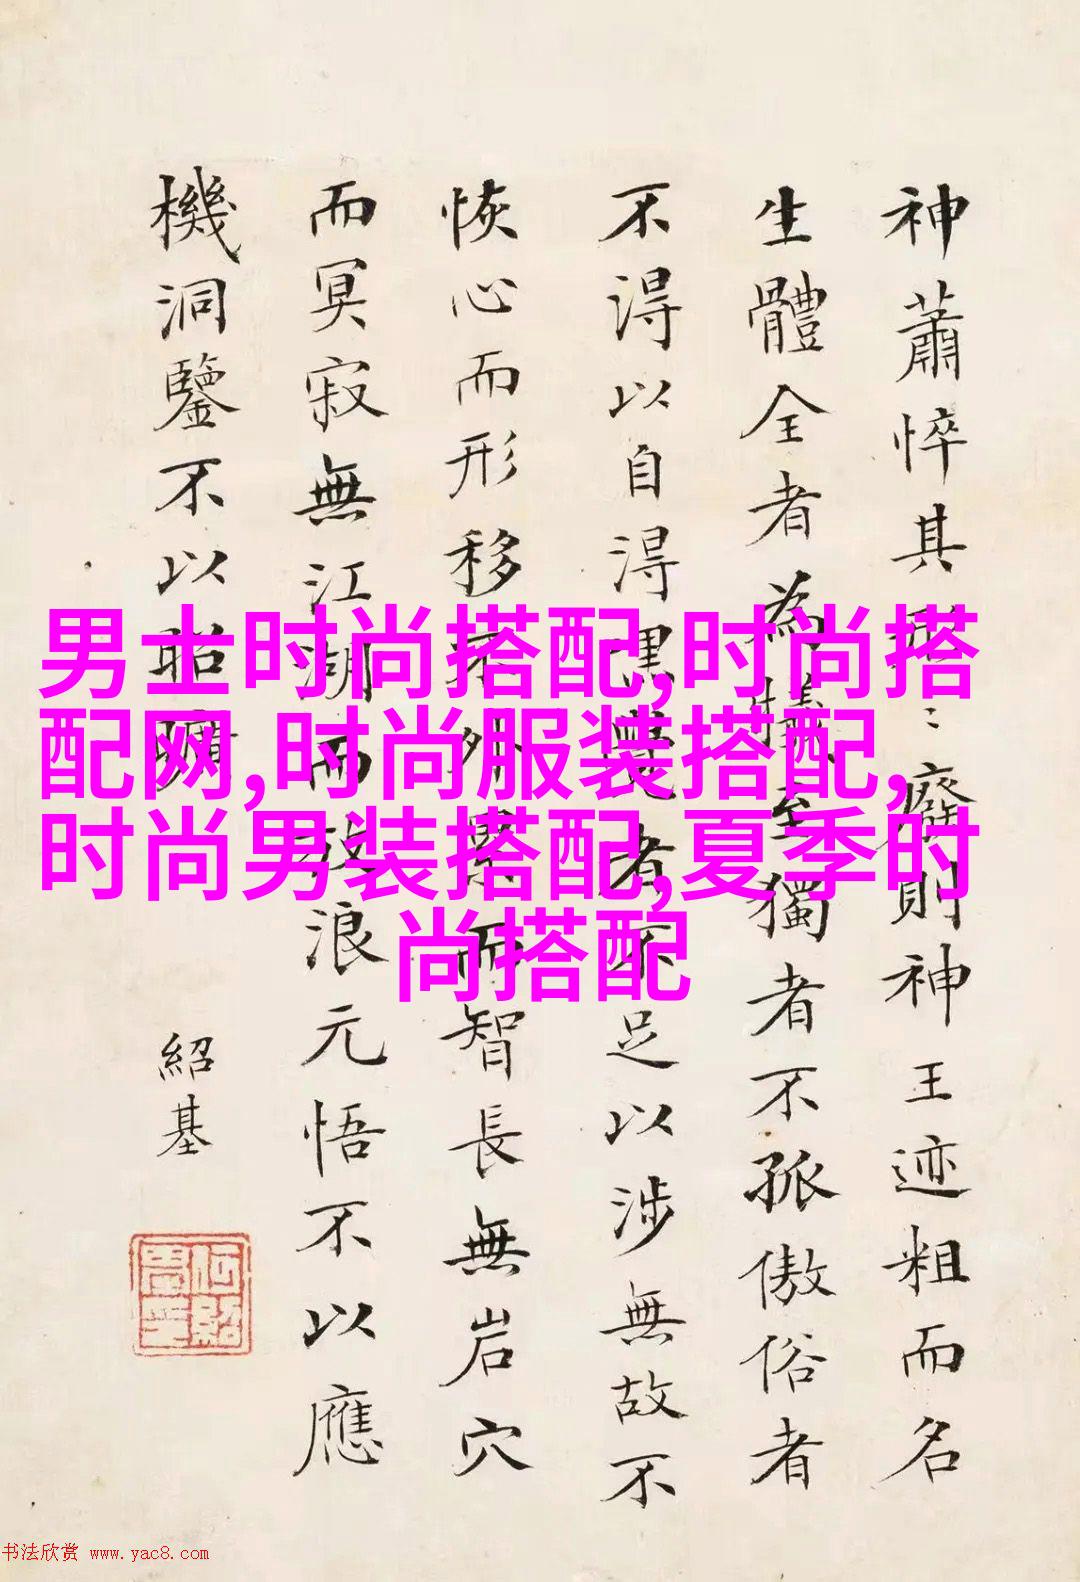 神蕭悴其〻廢則神王迹粗而名
生體全者為犧至獨者不孤傲俗者
不得以自得默覺者不足以涉無故不
恢心而形移外累而智長無岩穴
而冥寂無江湖而放浪元悟不以應
機洞鑒不以昭曠
紹基
男士时尚搭配,时尚搭
配网,时尚服装搭配,
时尚男装搭配,夏季时
尚搭配
书法欣赏 www.yac8.com